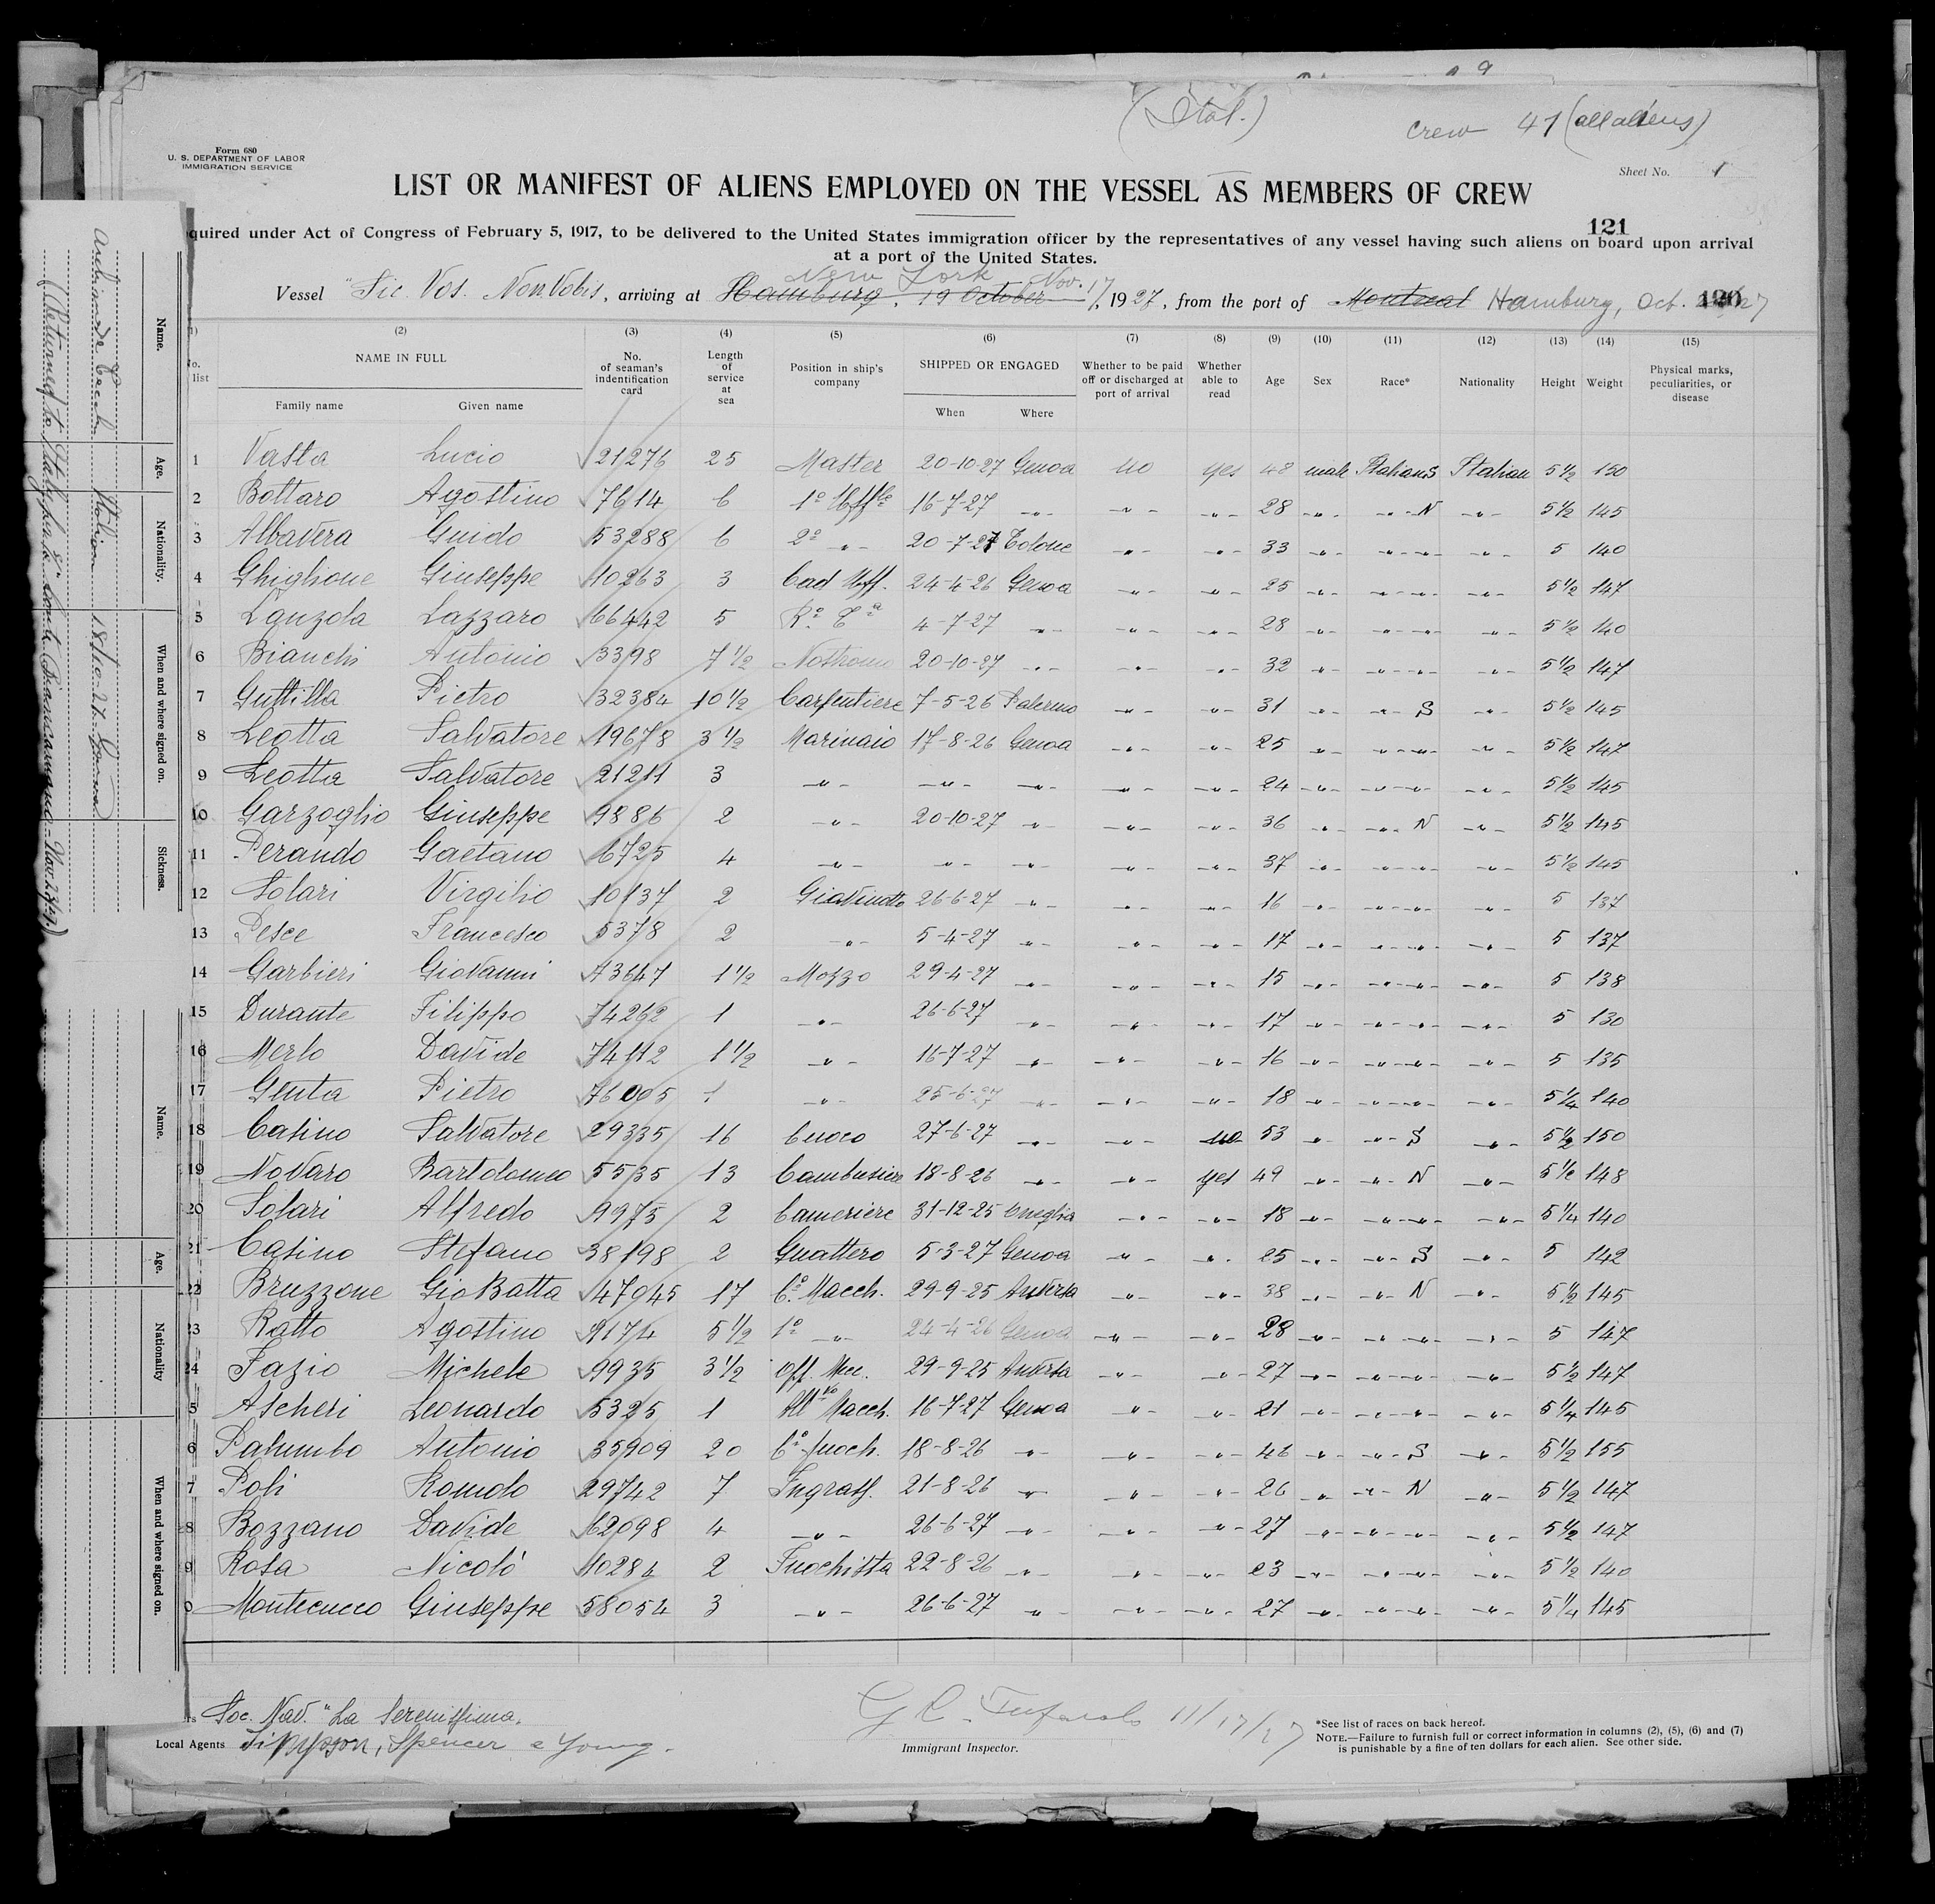 (Ital.)
crew 41 (all aliens)
Form 680
U. S. DEPARTMENT OF LABOR
IMMIGRATION SERVICE
Sheet No. 1
LIST OR MANIFEST OF ALIENS EMPLOYED ON THE VESSEL AS MEMBERS OF CREW
121
quired under Act of Congress of February 5, 1917, to be delivered to the United States immigration officer by the representatives of any vessel having such aliens on board upon arrival
at a port of the United States.
New York Nov. 17
Vessel "Sic. Vos. Non Vobis, arriving at Hamburg, 19 October, 1927, from the port of Montreal Hamburg, Oct.
120
(1) (2) (3) (4) (5) (6) (7) (8) (9) (10) (11) (12) (13) (14) (15)
No. list NAME IN FULL No. of seaman's indentification card Length of service at sea Position in ship's company SHIPPED OR ENGAGED Whether to be paid off or discharged at port of arrival Whether able to read Age Sex Race* Nationality Height Weight Physical marks, peculiarities, or disease
Family name Given name When Where
1 Vasta Lucio 21276 25 Master 20-10-27 Genoa no yes 48 male Italian S Italian 5 1/2 150
2 Bottaro Agostino 7614 6 1º Uff 16-7-27 -"- -"- -"- 28 -"- -"- N -"- 5 1/2 145
3 Albavera Guido 53288 6 2º -"- 20-7-27 -"- -"- 33 -"- -"- -"- -"- 5 140
4 Ghiglione Giuseppe 10263 3 Cad Uff. 24-4-26 Genoa -"- -"- 25 -"- -"- -"- -"- 5 1/2 147
5 Lanzola Lazzaro 66442 5 4-7-27 -"- -"- -"- 28 -"- -"- -"- -"- 5 1/2 140
6 Bianchi Antonio 3398 7 1/2 Nostromo 20-10-27 -"- -"- -"- 32 -"- -"- -"- -"- 5 1/2 147
7 Guttilla Pietro 32384 10 1/2 Carpentiere 7-5-26 Palermo -"- -"- 31 -"- -"- S -"- 5 1/2 145
8 Leotta Salvatore 19678 3 1/2 Marinaio 17-8-26 Genoa -"- -"- 25 -"- -"- -"- -"- 5 1/2 147
9 Leotta Salvatore 21211 3 -"- -"- -"- -"- -"- 24 -"- -"- -"- 5 1/2 145
10 Garzoglio Giuseppe 9886 2 -"- 20-10-27 -"- -"- -"- 36 -"- -"- N -"- 5 1/2 145
11 Perando Gaetano 6725 4 -"- -"- -"- -"- -"- 37 -"- -"- -"- -"- 5 1/2 145
12 Solari Virgilio 10137 2 Giovinotto 26-6-27 -"- -"- -"- 16 -"- -"- -"- -"- 5 137
13 Pesce Francesco 5378 2 -"- 5-4-27 -"- -"- -"- 17 -"- -"- -"- -"- 5 137
14 Garbieri Giovanni 73647 1 1/2 Mozzo 29-4-27 -"- -"- -"- 15 -"- -"- -"- -"- 5 138
15 Durante Filippo 74262 1 -"- 26-6-27 -"- -"- -"- 17 -"- -"- -"- -"- 5 130
16 Merlo Davide 74112 1 1/2 -"- 16-7-27 -"- -"- -"- 16 -"- -"- -"- -"- 5 135
17 Genta Pietro 76005 1 -"- 25-6-27 -"- -"- -"- 18 -"- -"- -"- -"- 5 1/4 140
18 Casino Salvatore 29335 16 Cuoco 27-6-27 -"- -"- no 53 -"- -"- S -"- 5 1/2 150
19 Novaro Bartolomeo 5535 13 Cambusiere 18-8-26 -"- -"- yes 49 -"- -"- N -"- 5 1/2 148
20 Solari Alfredo 9975 2 Cameriere 31-12-25 Oneglia -"- -"- 18 -"- -"- -"- -"- 5 1/4 140
21 Casino Stefano 38198 2 Guattero 5-3-27 Genoa -"- -"- 25 -"- -"- S -"- 5 142
22 Bruzzone GioBatta 47945 17 Cº. Macch. 29-9-25 Anversa -"- -"- 38 -"- -"- N -"- 5 1/2 145
23 Ratto Agostino 9174 5 1/2 1º -"- 24-4-26 Genoa -"- -"- 28 -"- -"- -"- -"- 5 147
24 Fazio Michele 9935 3 1/2 Off. Mec. 29-9-25 Anversa -"- -"- 27 -"- -"- -"- -"- 5 1/2 147
5 Ascheri Leonardo 5325 1 All Macch. 16-7-27 Genoa -"- -"- 21 -"- -"- -"- -"- 5 1/4 145
6 Palumbo Antonio 35909 20 Cº. fuoch. 18-8-26 -"- -"- -"- 46 -"- -"- S -"- 5 1/2 155
7 Poli Romolo 29742 7 Ingrass. 21-8-26 -"- -"- -"- 26 -"- -"- N -"- 5 1/2 147
8 Bozzano Davide 62098 4 -"- 26-6-27 -"- -"- -"- 27 -"- -"- -"- -"- 5 1/2 147
9 Rosa Nicolò 10284 2 Fuochista 22-8-26 -"- -"- -"- 23 -"- -"- -"- -"- 5 1/2 140
0 Montecucco Giuseppe 58054 3 -"- 26-6-27 -"- -"- -"- 27 -"- -"- -"- -"- 5 1/4 145
Soc. Nav. "La Serenissima.
Local Agents Simpson, Spencer e Young.
11/17/27
Immigrant Inspector.
*See list of races on back hereof.
NOTE.—Failure to furnish full or correct information in columns (2), (5), (6) and (7)
is punishable by a fine of ten dollars for each alien. See other side.
Name. Age. Nationality. When and where signed on. Sickness.
Italian 18/10-27 Genova
(Returned to Italy per ss. Conte Biancamano - Nov 23/27)
Name. Age. Nationality When and where signed on.